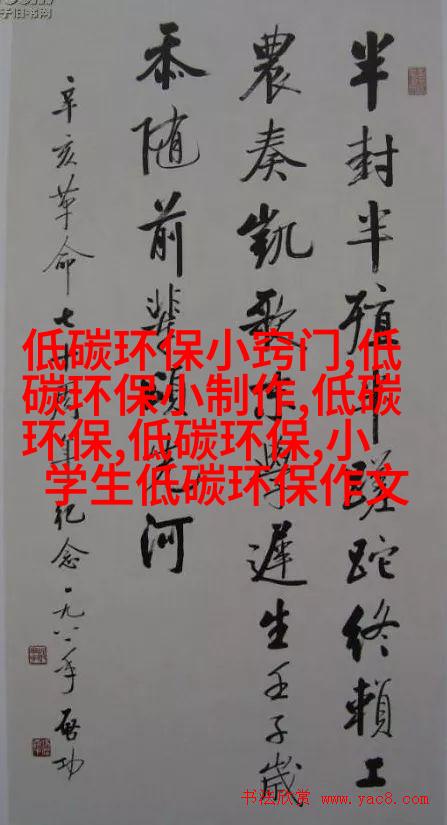 子旧书网
半封半殖半蹉跎终赖工
農奏凱歌學遲生壬子歲
忝随前輩頌河
辛亥革命七十周年纪念一九八一年启功
低碳环保小窍门,低
碳环保小制作,低碳
环保,低碳环保,小
学生低碳环保作文
书法欣赏 www.yac8.com